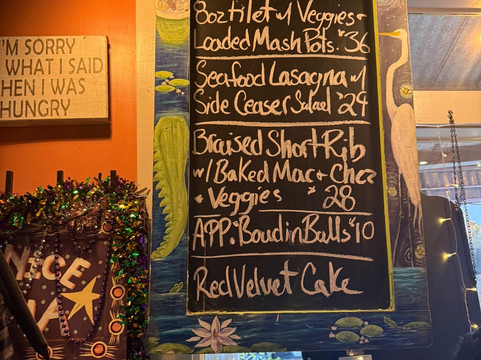 I'M SORRY
WHAT I SAID
HEN I WAS
HUNGRY
8oz filet w/ Veggies +
Loaded Mash Pots. $36
Seafood Lasagna w/
Side Ceaser Salad $24
Braised Short Rib
w/ Baked Mac + Chez
+ Veggies $28
APP: Boudin Balls $10
Red Velvet Cake
NICE